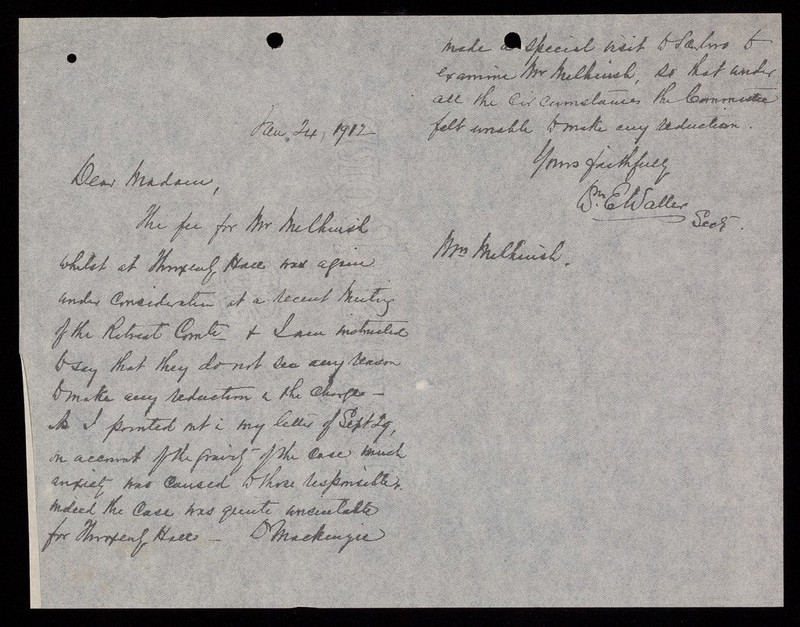 Jan. 24, 1912
Dear Madam,
The fee for Mr Melhuish
whilst at Throxenby Hall was again
under consideration at a recent Meeting
of the Retreat Comte & I am instructed
to say that they do not see any reason
to make any reduction in the charge —
As I pointed out in my letter of Sept 29,
on account of the gravity of the case much
anxiety was caused to those responsible &
indeed the case was quite unsuitable
for Throxenby Hall — Dr Mackenzie
made a special visit to Scarbro to
examine Mr Melhuish, so that under
all the circumstances the Committee
felt unable to make any reduction.
Yours faithfully
Wm. E Waller
Secy.
Mrs Melhuish.